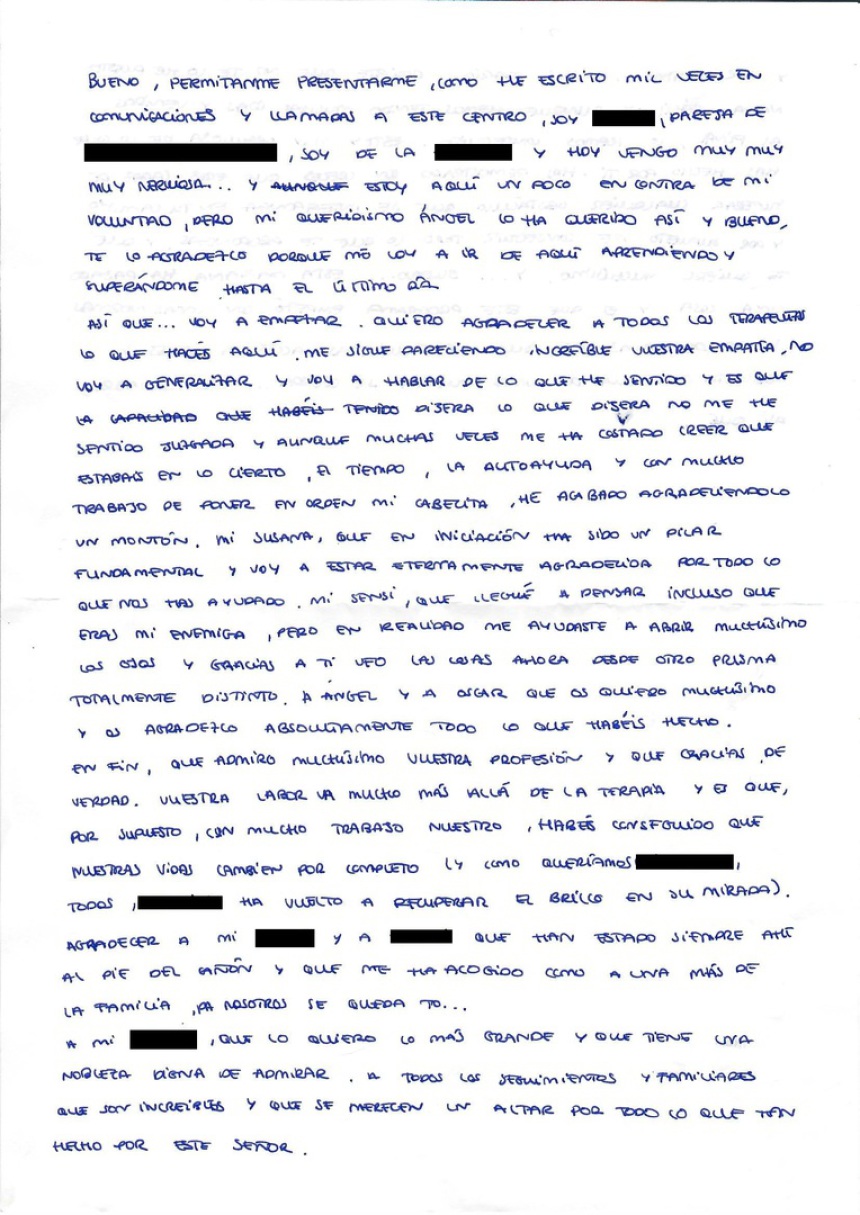 BUENO, PERMITANME PRESENTARME, COMO HE ESCRITO MIL VECES EN
COMUNICACIONES Y LLAMADAS A ESTE CENTRO, SOY , PAREJA DE
, SOY DE LA Y HOY VENGO MUY MUY
MUY NERVIOSA... Y AUNQUE ESTOY AQUÍ UN POCO EN CONTRA DE MI
VOLUNTAD, PERO MI QUERIDISIMO ÁNGEL LO HA QUERIDO ASÍ Y BUENO,
TE LO AGRADEZCO PORQUE ME VOY A IR DE AQUÍ APRENDIENDO Y
SUPERÁNDOME HASTA EL ÚLTIMO DÍA.
ASÍ QUE... VOY A EMPEZAR. QUIERO AGRADECER A TODOS LOS TERAPEUTAS
LO QUE HACÉIS AQUÍ. ME SIGUE PARECIENDO INCREÍBLE VUESTRA EMPATÍA. NO
VOY A GENERALIZAR Y VOY A HABLAR DE LO QUE HE SENTIDO Y ES QUE
LA CAPACIDAD QUE HABÉIS TENIDO DIJERA LO QUE DIJERA NO ME HE
SENTIDO JUZGADA Y AUNQUE MUCHAS VECES ME HA COSTADO CREER QUE
ESTABAIS EN LO CIERTO, EL TIEMPO, LA AUTOAYUDA Y CON MUCHO
TRABAJO DE PONER EN ORDEN MI CABECITA, HE ACABADO AGRADECIENDOLO
UN MONTÓN. MI SUSANA, QUE EN INICIACIÓN HA SIDO UN PILAR
FUNDAMENTAL Y VOY A ESTAR ETERNAMENTE AGRADECIDA POR TODO LO
QUE NOS HAS AYUDADO. MI SENSI, QUE LLEGUÉ A PENSAR INCLUSO QUE
ERAS MI ENEMIGA, PERO EN REALIDAD ME AYUDASTE A ABRIR MUCHÍSIMO
LOS OJOS Y GRACIAS A TI VEO LAS COSAS AHORA DESDE OTRO PRISMA
TOTALMENTE DISTINTO. A ÁNGEL Y A OSCAR QUE OS QUIERO MUCHÍSIMO
Y OS AGRADEZCO ABSOLUTAMENTE TODO LO QUE HABÉIS HECHO.
EN FIN, QUE ADMIRO MUCHÍSIMO VUESTRA PROFESIÓN Y QUE GRACIAS, DE
VERDAD. VUESTRA LABOR VA MUCHO MÁS ALLÁ DE LA TERAPIA Y ES QUE,
POR SUPUESTO, CON MUCHO TRABAJO NUESTRO, HABÉIS CONSEGUIDO QUE
NUESTRAS VIDAS CAMBIEN POR COMPLETO (Y COMO QUERÍAMOS ,
TODOS, HA VUELTO A RECUPERAR EL BRILLO EN SU MIRADA).
AGRADECER A MI Y A QUE HAN ESTADO SIEMPRE AHÍ
AL PIE DEL CAÑÓN Y QUE ME HA ACOGIDO COMO A UNA MÁS DE
LA FAMILIA, PA NOSOTROS SE QUEDA TO...
A MI , QUE LO QUIERO LO MÁS GRANDE Y QUE TIENE UNA
NOBLEZA DIGNA DE ADMIRAR. A TODOS LOS SEGUIMIENTOS Y FAMILIARES
QUE SON INCREÍBLES Y QUE SE MERECEN UN ALTAR POR TODO LO QUE HAN
HECHO POR ESTE SEÑOR.